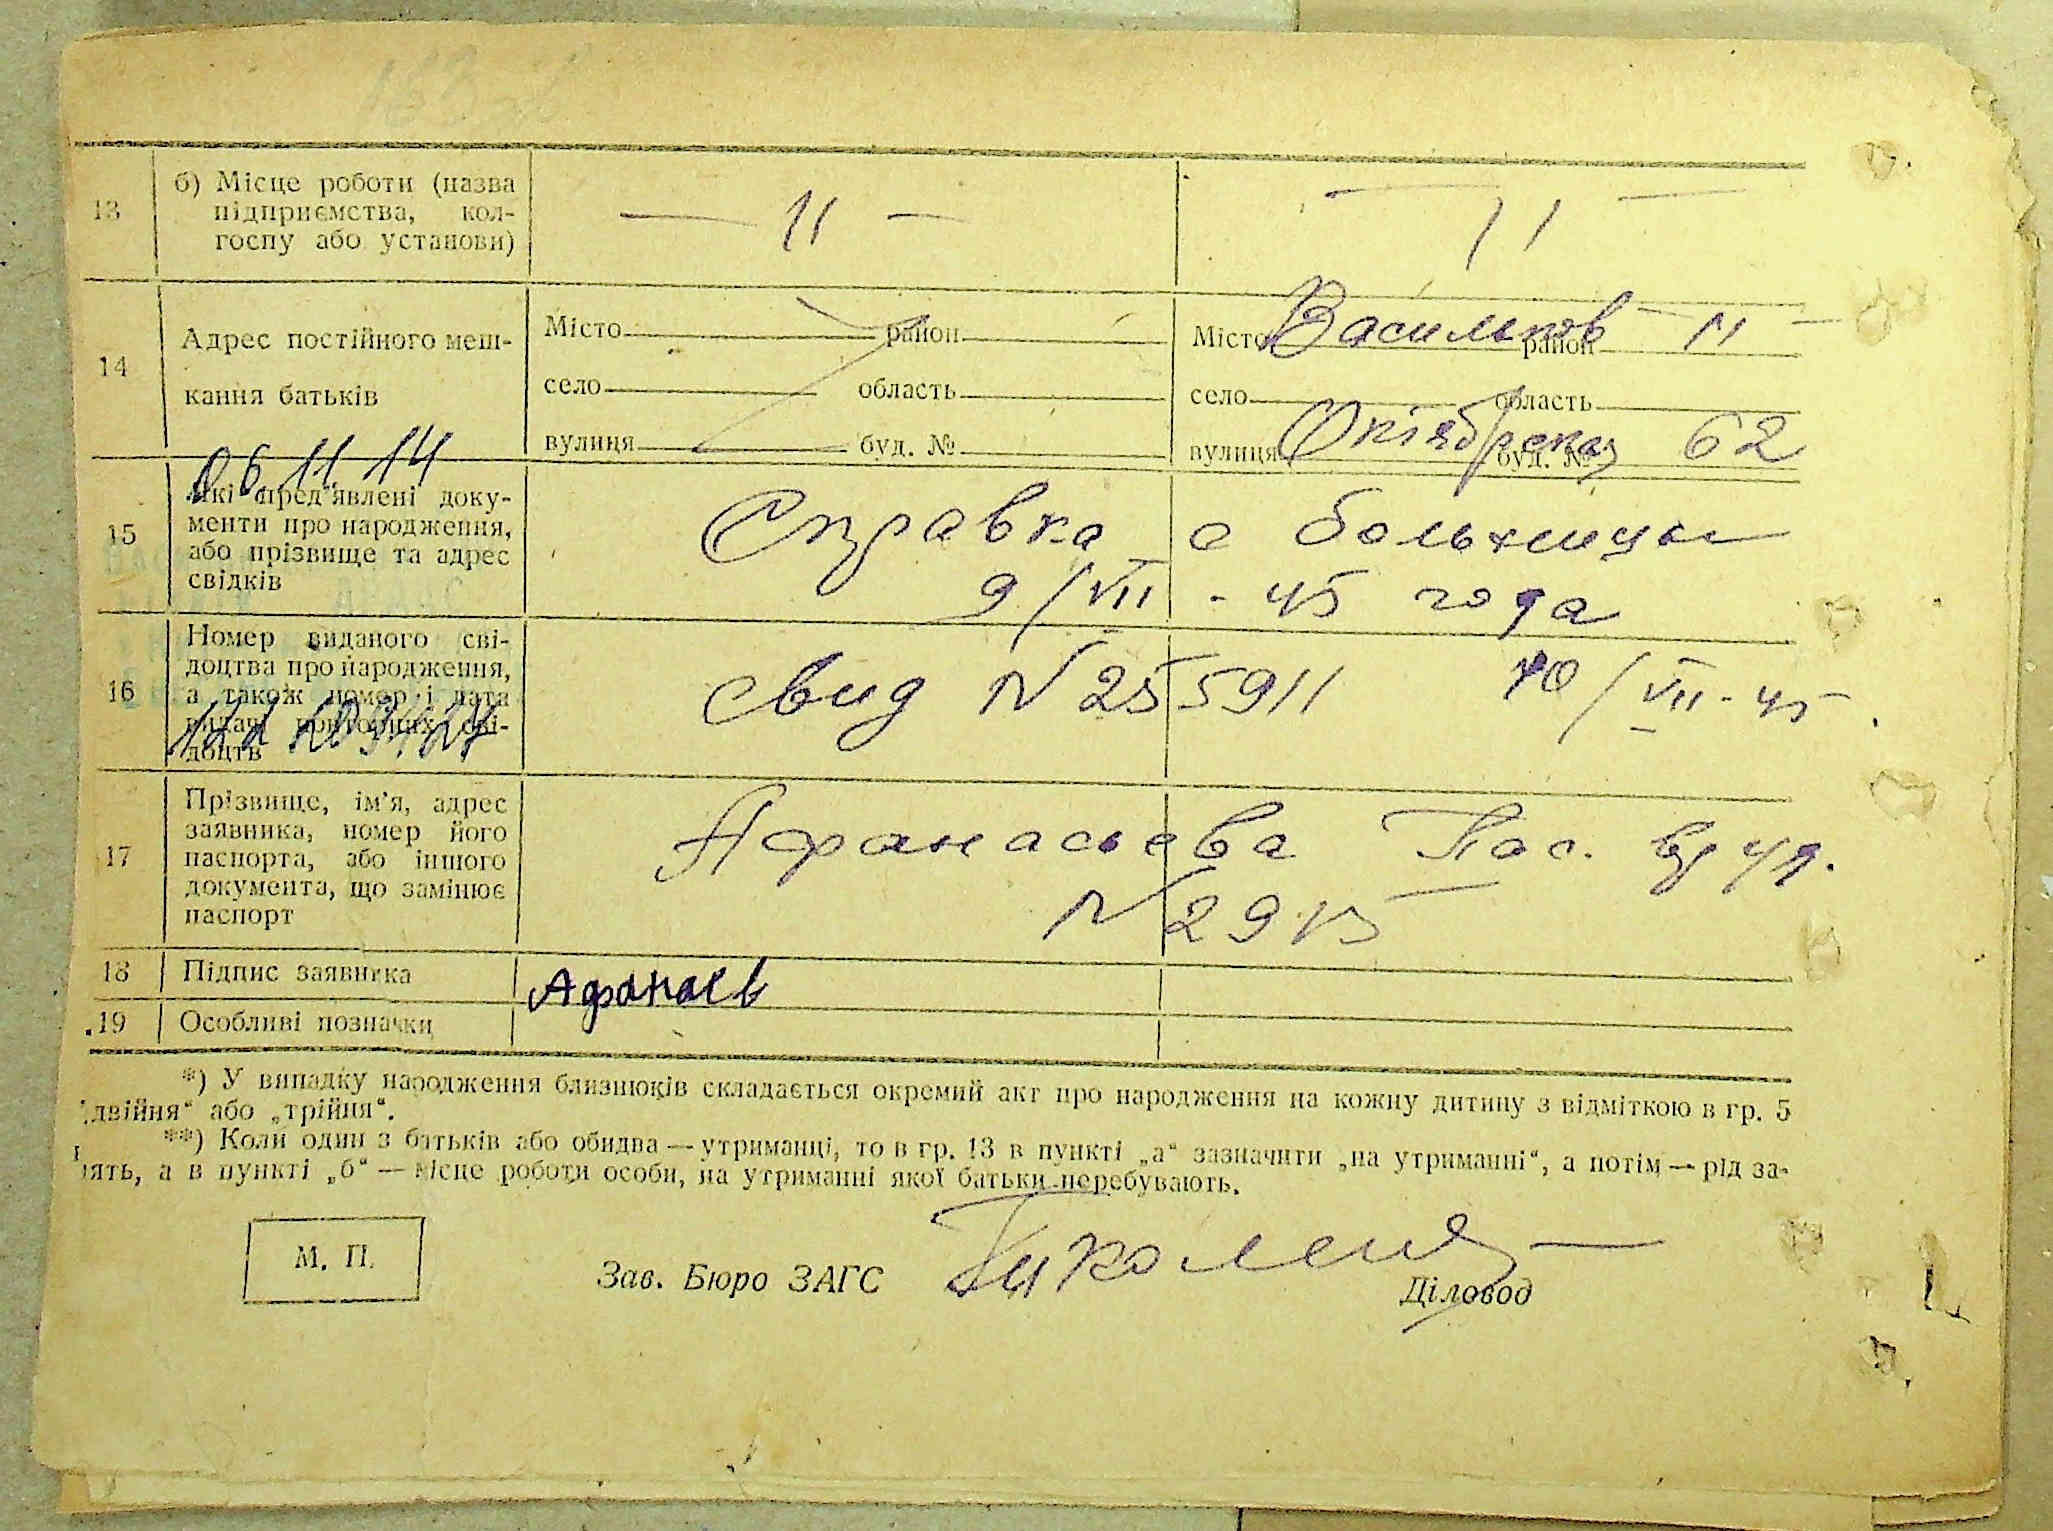 13
б) Місце роботи (назва
підприємства, кол-
госпу або установи)
— 11 —
— 11 —
14
Адрес постійного меш-
кання батьків
Місто район
село область
вулиця буд. №
Місто Васильков район — 11 —
село область
вулиця Октябрская буд. № 62
06 11 14
15
Які пред'явлені доку-
менти про народження,
або прізвище та адрес
свідків
Справка с больницы
9/VII - 45 года
16
Номер виданого сві-
доцтва про народження,
а також номер і дата
видачі повторних сві-
доцтв
свид N 255911 10/VII - 45
17
Прізвище, ім'я, адрес
заявника, номер його
паспорта, або іншого
документа, що замінює
паспорт
Афанасьева Пас.
N 2915
18
Підпис заявника
Афанасв
19
Особливі позначки
*) У випадку народження близнюків складається окремий акт про народження на кожну дитину з відміткою в гр. 5
„двійня“ або „трійня“.
**) Коли один з батьків або обидва — утриманці, то в гр. 13 в пункті „а“ зазначити „на утриманні“, а потім — рід за-
нять, а в пункті „б“ — місце роботи особи, на утриманні якої батьки перебувають.
М. П.
Зав. Бюро ЗАГС
Діловод